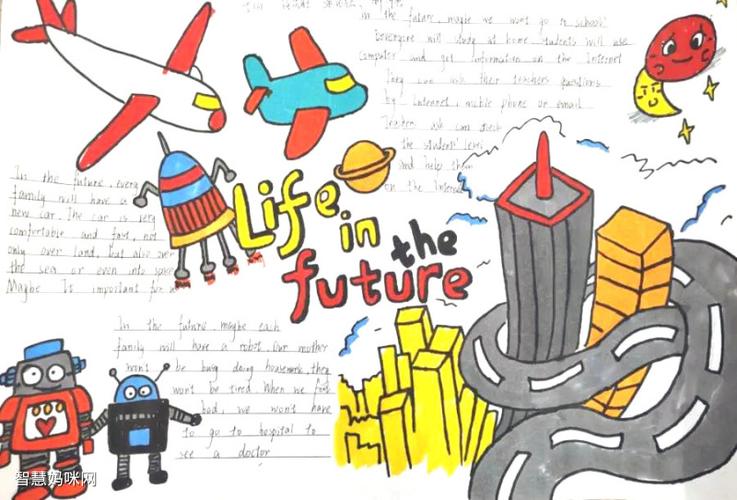 In the future, maybe we wont go to school.
Everyone will study at home. Students will use
computer and get information on the Internet
They can ask their teachers questions
by Internet, mobile phone or email
Teachers
the students'
and help them
on the Internet
In the future, every
family will have a
new car. The car is very
comfortable and fast, not
only over land, but also over
the sea or even into space
Maybe It important for
Life in the future
In the future, maybe each
family will have a robot. Our mother
won't be busy doing housework, they
won't be tired. When we feel
bad, we won't have
to go to hospital to
see a doctor
智慧妈咪网